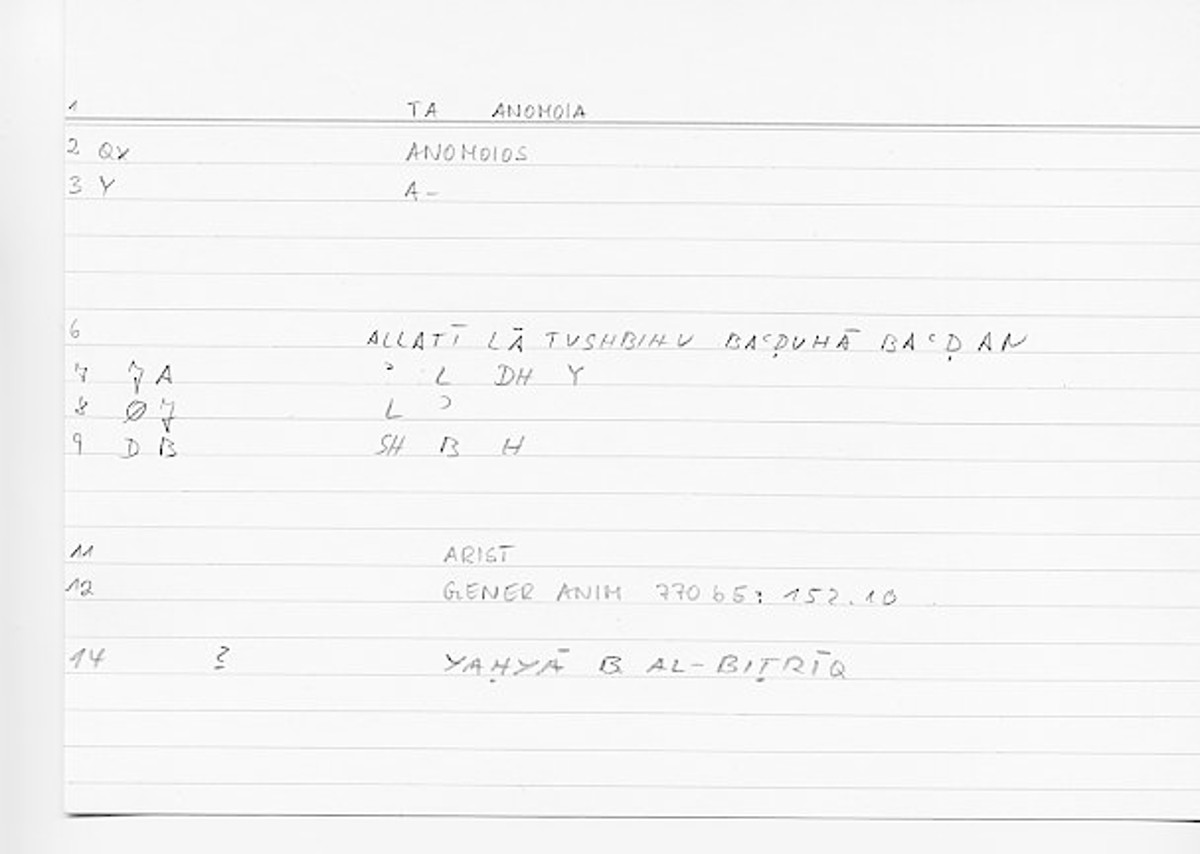 1 TA ANOMOIA
2 Qx ANOMOIOS
3 Y A-
6 ALLATĪ LĀ TUSHBIHU BAʿḌUHĀ BAʿḌAN
7 7 A ʾ L DH Y
8 Ø 7 L ʾ
9 D B SH B H
11 ARIST
12 GENER ANIM 770 b5: 152.10
14 2 YAḤYĀ B AL-BIṬRĪQ